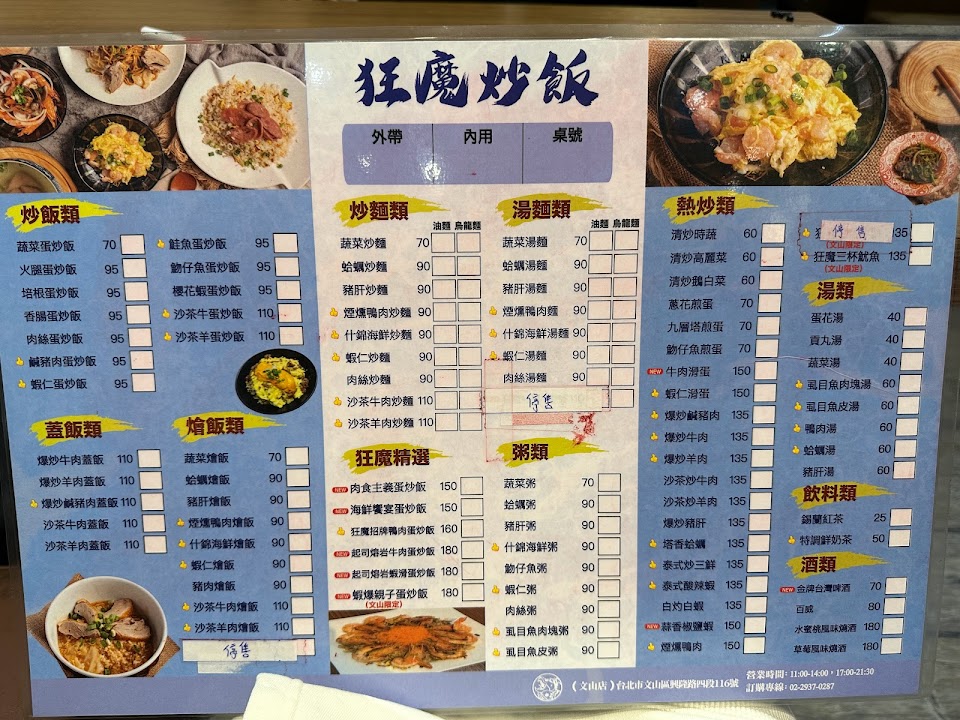 狂魔炒飯
外帶 內用 桌號
炒飯類
蔬菜蛋炒飯 70
火腿蛋炒飯 95
培根蛋炒飯 95
香腸蛋炒飯 95
肉絲蛋炒飯 95
鹹豬肉蛋炒飯 95
蝦仁蛋炒飯 95
鮭魚蛋炒飯 95
魩仔魚蛋炒飯 95
櫻花蝦蛋炒飯 95
沙茶牛蛋炒飯 110
沙茶羊蛋炒飯 110
蓋飯類
爆炒牛肉蓋飯 110
爆炒羊肉蓋飯 110
爆炒鹹豬肉蓋飯 110
沙茶牛肉蓋飯 110
沙茶羊肉蓋飯 110
燴飯類
蔬菜燴飯 70
蛤蠣燴飯 90
豬肝燴飯 90
煙燻鴨肉燴飯 90
什錦海鮮燴飯 90
蝦仁燴飯 90
豬肉燴飯 90
沙茶牛肉燴飯 110
沙茶羊肉燴飯 110
停售
炒麵類
油麵 烏龍麵
蔬菜炒麵 70
蛤蠣炒麵 90
豬肝炒麵 90
煙燻鴨肉炒麵 90
什錦海鮮炒麵 90
蝦仁炒麵 90
肉絲炒麵 90
沙茶牛肉炒麵 110
沙茶羊肉炒麵 110
湯麵類
油麵 烏龍麵
蔬菜湯麵 70
蛤蠣湯麵 90
豬肝湯麵 90
煙燻鴨肉湯麵 90
什錦海鮮湯麵 90
蝦仁湯麵 90
肉絲湯麵 90
停售
狂魔精選
NEW 肉食主義蛋炒飯 150
NEW 海鮮饗宴蛋炒飯 150
狂魔招牌鴨肉蛋炒飯 160
NEW 起司熔岩牛肉蛋炒飯 180
NEW 起司熔岩蝦滑蛋炒飯 180
NEW 蝦爆親子蛋炒飯 180
(文山限定)
粥類
蔬菜粥 70
蛤蠣粥 90
豬肝粥 90
什錦海鮮粥 90
魩仔魚粥 90
蝦仁粥 90
肉絲粥 90
虱目魚肉塊粥 90
虱目魚皮粥 90
熱炒類
清炒時蔬 60
清炒高麗菜 60
清炒鵝白菜 60
蔥花煎蛋 70
九層塔煎蛋 70
魩仔魚煎蛋 70
NEW 牛肉滑蛋 150
蝦仁滑蛋 150
爆炒鹹豬肉 135
爆炒牛肉 135
爆炒羊肉 135
沙茶炒牛肉 135
沙茶炒羊肉 135
爆炒豬肝 135
塔香蛤蠣 135
泰式炒三鮮 135
泰式酸辣蝦 135
白灼白蝦 135
NEW 蒜香椒鹽蝦 150
煙燻鴨肉 150
停售 35
(文山限定)
狂魔三杯魷魚 135
(文山限定)
湯類
蛋花湯 40
貢丸湯 40
蔬菜湯 40
虱目魚肉塊湯 60
虱目魚皮湯 60
鴨肉湯 60
蛤蠣湯 60
豬肝湯 60
飲料類
錫蘭紅茶 25
特調鮮奶茶 50
酒類
NEW 金牌台灣啤酒 70
百威 80
水蜜桃風味燒酒 180
草莓風味燒酒 180
(文山店)台北市文山區興隆路四段116號
營業時間:11:00-14:00,17:00-21:30
訂購專線:02-2937-0287